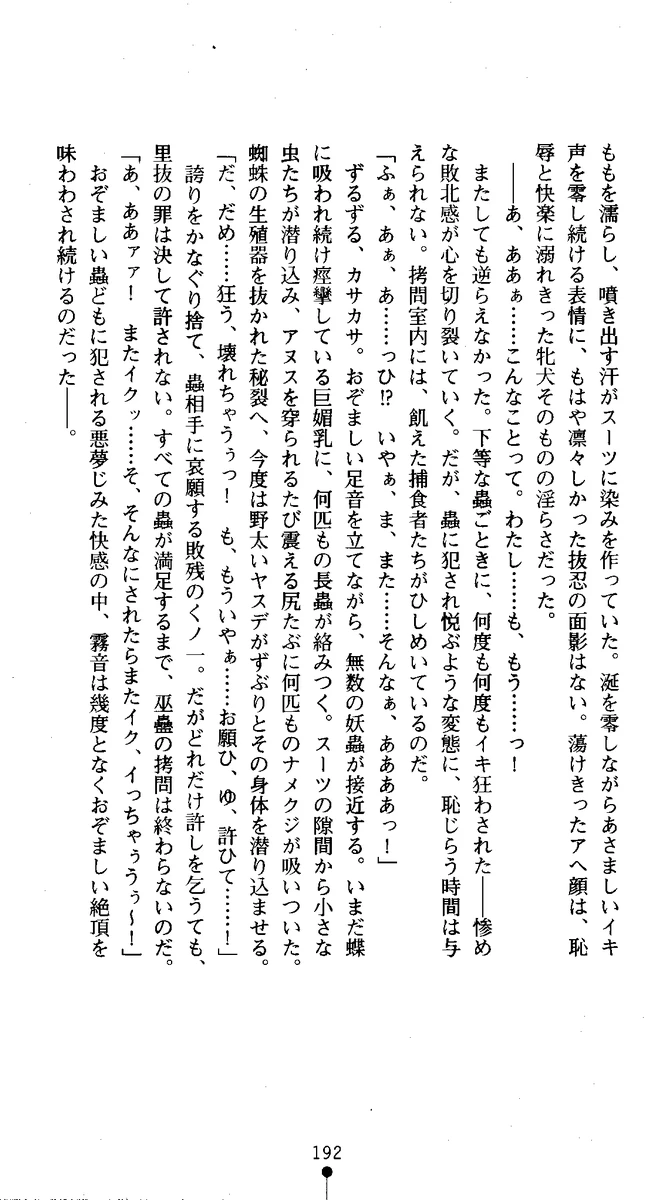 ももを濡らし、噴き出す汗がスーツに染みを作っていた。涎を零しながらあさましいイキ
声を零し続ける表情に、もはや凛々しかった抜忍の面影はない。蕩けきったアヘ顔は、恥
辱と快楽に溺れきった牝犬そのものの淫らさだった。
――あ、ああぁ……こんなことって。わたし……も、もう……っ！
またしても逆らえなかった。下等な蟲ごときに、何度も何度もイキ狂わされた――惨め
な敗北感が心を切り裂いていく。だが、蟲に犯され悦ぶような変態に、恥じらう時間は与
えられない。拷問室内には、飢えた捕食者たちがひしめいているのだ。
「ふぁ、あぁ、あ……っひ!?　いやぁ、ま、また……そんなぁ、ああああっ！」
ずるずる、カサカサ。おぞましい足音を立てながら、無数の妖蟲が接近する。いまだ蝶
に吸われ続け痙攣している巨媚乳に、何匹もの長蟲が絡みつく。スーツの隙間から小さな
虫たちが潜り込み、アヌスを穿られるたび震える尻たぶに何匹ものナメクジが吸いついた。
蜘蛛の生殖器を抜かれた秘裂へ、今度は野太いヤスデがずぶりとその身体を潜り込ませる。
「だ、だめ……狂う、壊れちゃうぅっ！　も、もういやぁ……お願ひ、ゆ、許ひて……！」
誇りをかなぐり捨て、蟲相手に哀願する敗残のくノ一。だがどれだけ許しを乞うても、
里抜の罪は決して許されない。すべての蟲が満足するまで、巫蠱の拷問は終わらないのだ。
「あ、ああァァ！　またイクッ……そ、そんなにされたらまたイク、イっちゃぅうぅ～！」
おぞましい蟲どもに犯される悪夢じみた快感の中、霧音は幾度となくおぞましい絶頂を
味わわされ続けるのだった――。
192